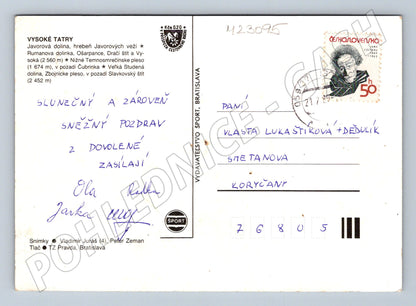 VYSOKÉ TATRY
Javorová dolina, hrebeň Javorových veží ●
Rumanova dolinka, Ošarpance, Dračí štít a Vy-
soká (2 560 m) ● Nižné Temnosmrečinské pleso
(1 674 m), v pozadí Čubrinka ● Veľká Studená
dolina, Zbojnícke pleso, v pozadí Slavkovský štít
(2 452 m)
M23095
ČESKOSLOVENSKO
50
SLUNEČNÝ A ZÁROVEŇ
SNĚŽNÝ POZDRAV
Z DOVOLENÉ
ZASÍLAJÍ
Ola
Jarka
VYDAVATEĽSTVO ŠPORT, BRATISLAVA
PANÍ
VLASTA LUKAŠTÍKOVÁ + DĚDULÍK
SMETANOVA
KORYČANY
76805
ŠPORT
Snímky ● Vladimír Juráš (4), Peter Zeman
Tlač ● TZ Pravda, Bratislava
POHLEDNICE - CASH